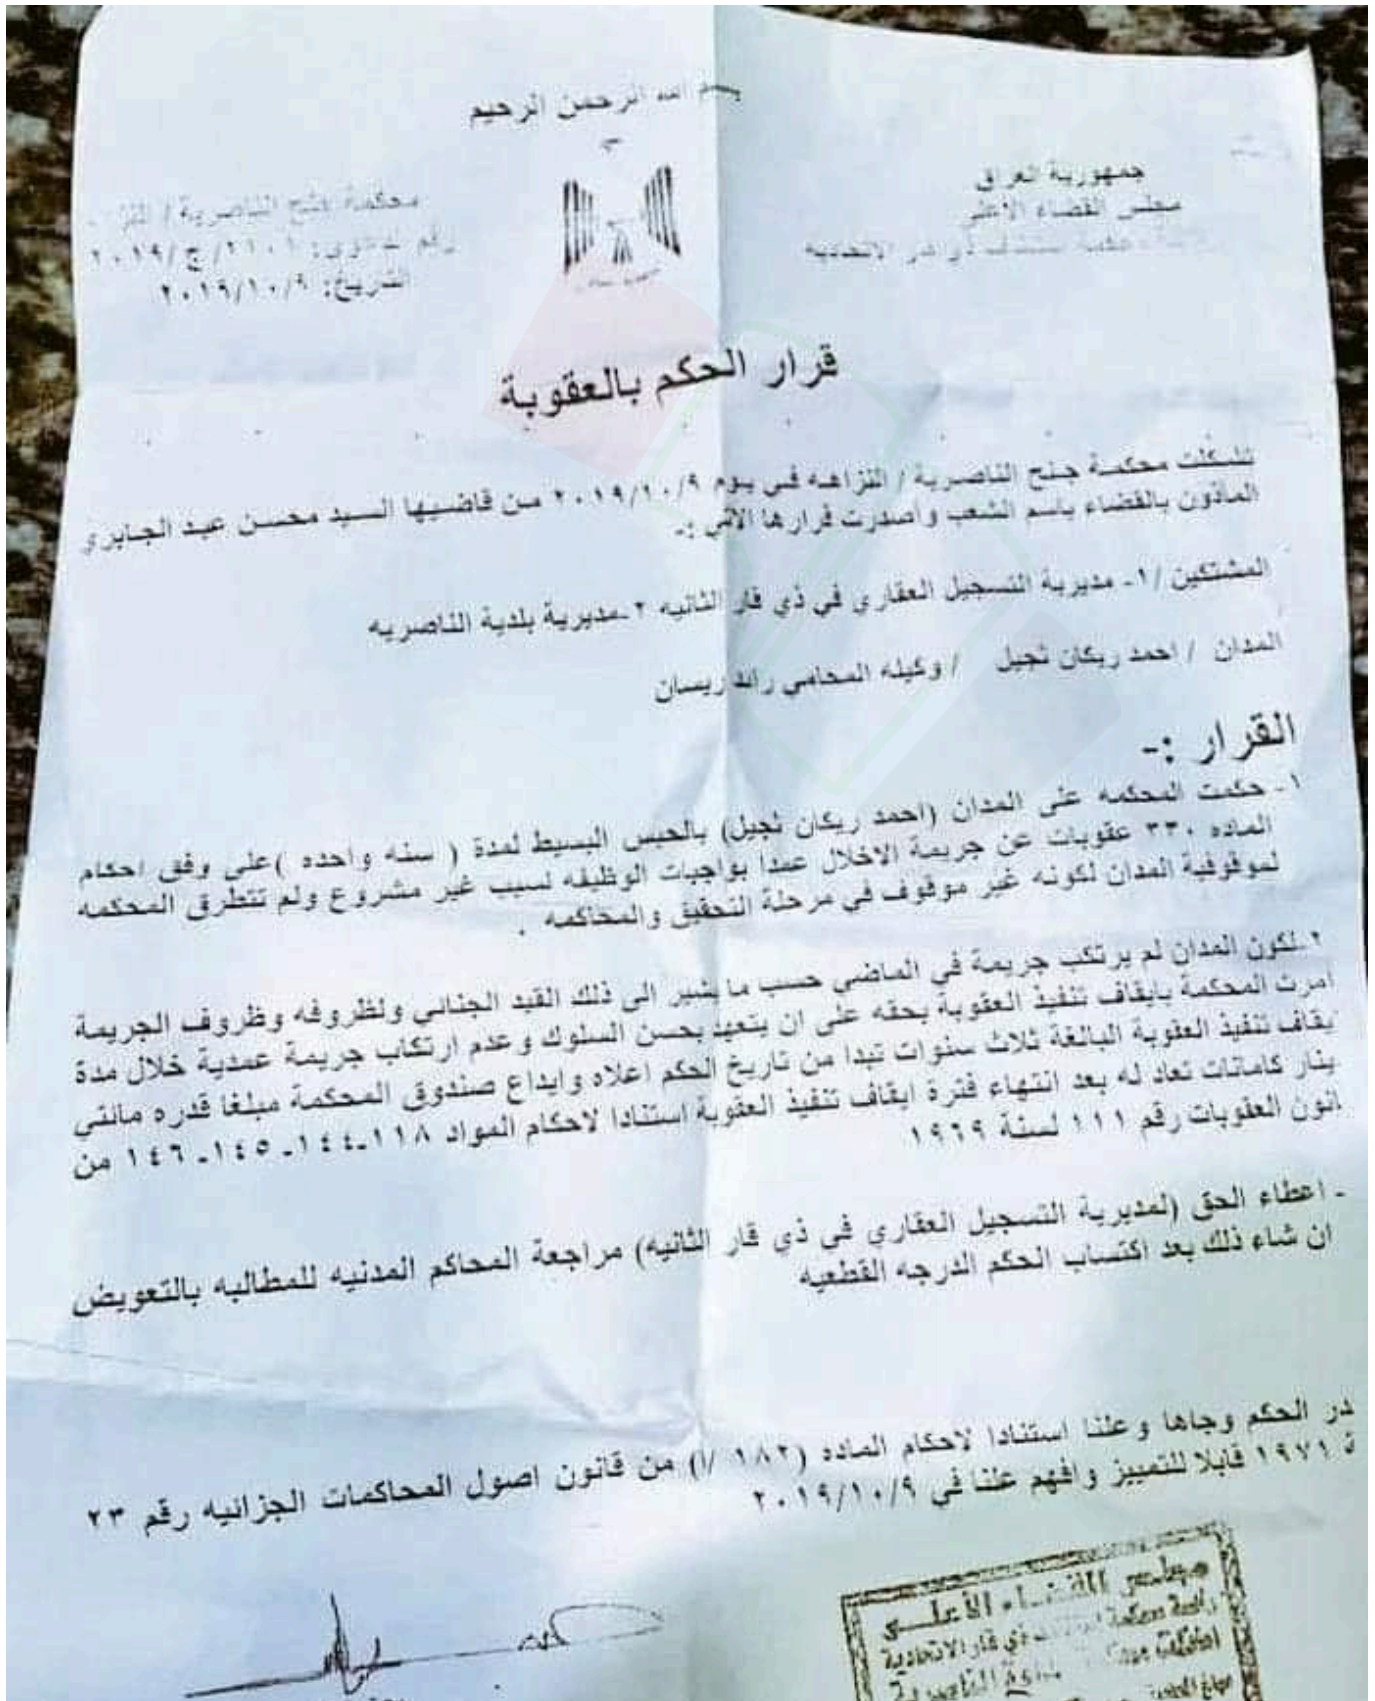 بسم الله الرحمن الرحيم
جمهورية العراق
مجلس القضاء الاعلى
استئناف ذي قار الاتحادية
محكمة جنح الناصرية / النزاهه
رقم الدعوى: /ج/٢٠١٩
التاريخ: ٢٠١٩/١٠/٩
قرار الحكم بالعقوبة
تشكلت محكمة جنح الناصرية / النزاهه في يوم ٢٠١٩/١٠/٩ من قاضيها السيد محسن عبد الجابري
المأذون بالقضاء باسم الشعب وأصدرت قرارها الآتي :-
المشتكين /١- مديرية التسجيل العقاري في ذي قار الثانيه ٢-مديرية بلدية الناصريه
المدان / احمد ريكان نجيل / وكيله المحامي رائد ريسان
القرار :-
١- حكمت المحكمه على المدان (احمد ريكان نجيل) بالحبس البسيط لمدة ( سنه واحده )على وفق احكام
الماده ٣٣٠ عقوبات عن جريمة الاخلال عمدا بواجبات الوظيفه لسبب غير مشروع ولم تتطرق المحكمه
لموقوفية المدان لكونه غير موقوف في مرحلة التحقيق والمحاكمه .
٢-لكون المدان لم يرتكب جريمة في الماضي حسب ما يشير الى ذلك القيد الجنائي ولظروفه وظروف الجريمة
امرت المحكمة بايقاف تنفيذ العقوبة بحقه على ان يتعهد بحسن السلوك وعدم ارتكاب جريمة عمدية خلال مدة
يقاف تنفيذ العقوبة البالغة ثلاث سنوات تبدا من تاريخ الحكم اعلاه وايداع صندوق المحكمة مبلغا قدره مائتي
ينار كامانات تعاد له بعد انتهاء فترة ايقاف تنفيذ العقوبة استنادا لاحكام المواد ١١٨-١٤٤-١٤٥-١٤٦ من
انون العقوبات رقم ١١١ لسنة ١٩٦٩
- اعطاء الحق (لمديرية التسجيل العقاري في ذي قار الثانيه) مراجعة المحاكم المدنيه للمطالبه بالتعويض
ان شاء ذلك بعد اكتساب الحكم الدرجه القطعيه
در الحكم وجاها وعلنا استنادا لاحكام الماده (١٨٢ /أ) من قانون اصول المحاكمات الجزائيه رقم ٢٣
ة ١٩٧١ قابلا للتمييز وافهم علنا في ٢٠١٩/١٠/٩
مجلس القضاء الأعلى
رئاسة محكمة ذي قار الاتحادية
الناصرية